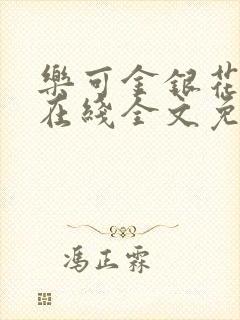 樂可金銀花
在綫全文免
馮正霖